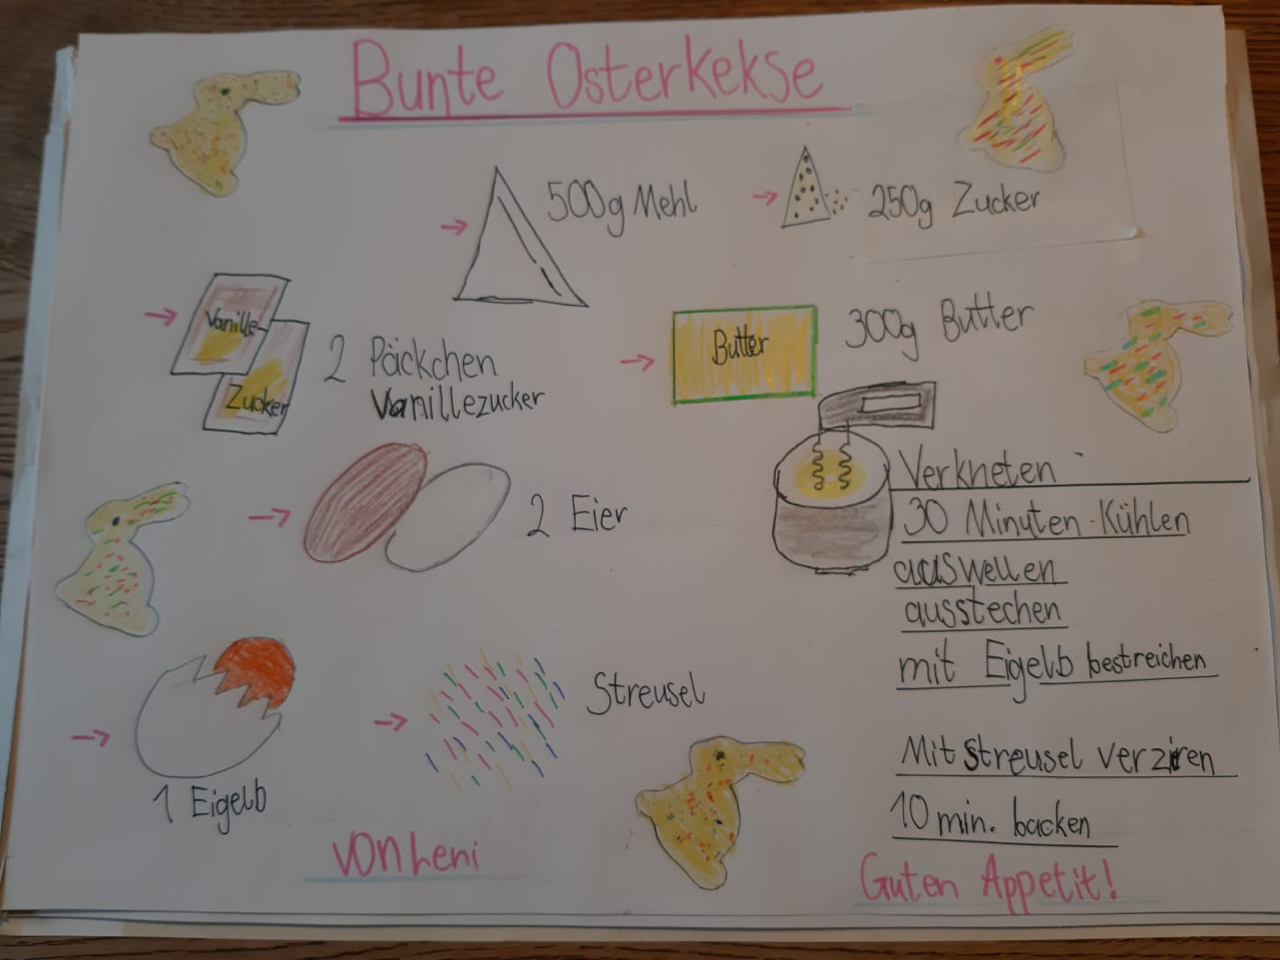 Bunte Osterkekse
500g Mehl
250g Zucker
Vanille-
Zucker
2 Päckchen
Vanillezucker
Butter
300g Butter
2 Eier
1 Eigelb
Streusel
Verkneten
30 Minuten Kühlen
auswellen
ausstechen
mit Eigelb bestreichen
Mit Streusel verziren
10 min. backen
von Leni
Guten Appetit!